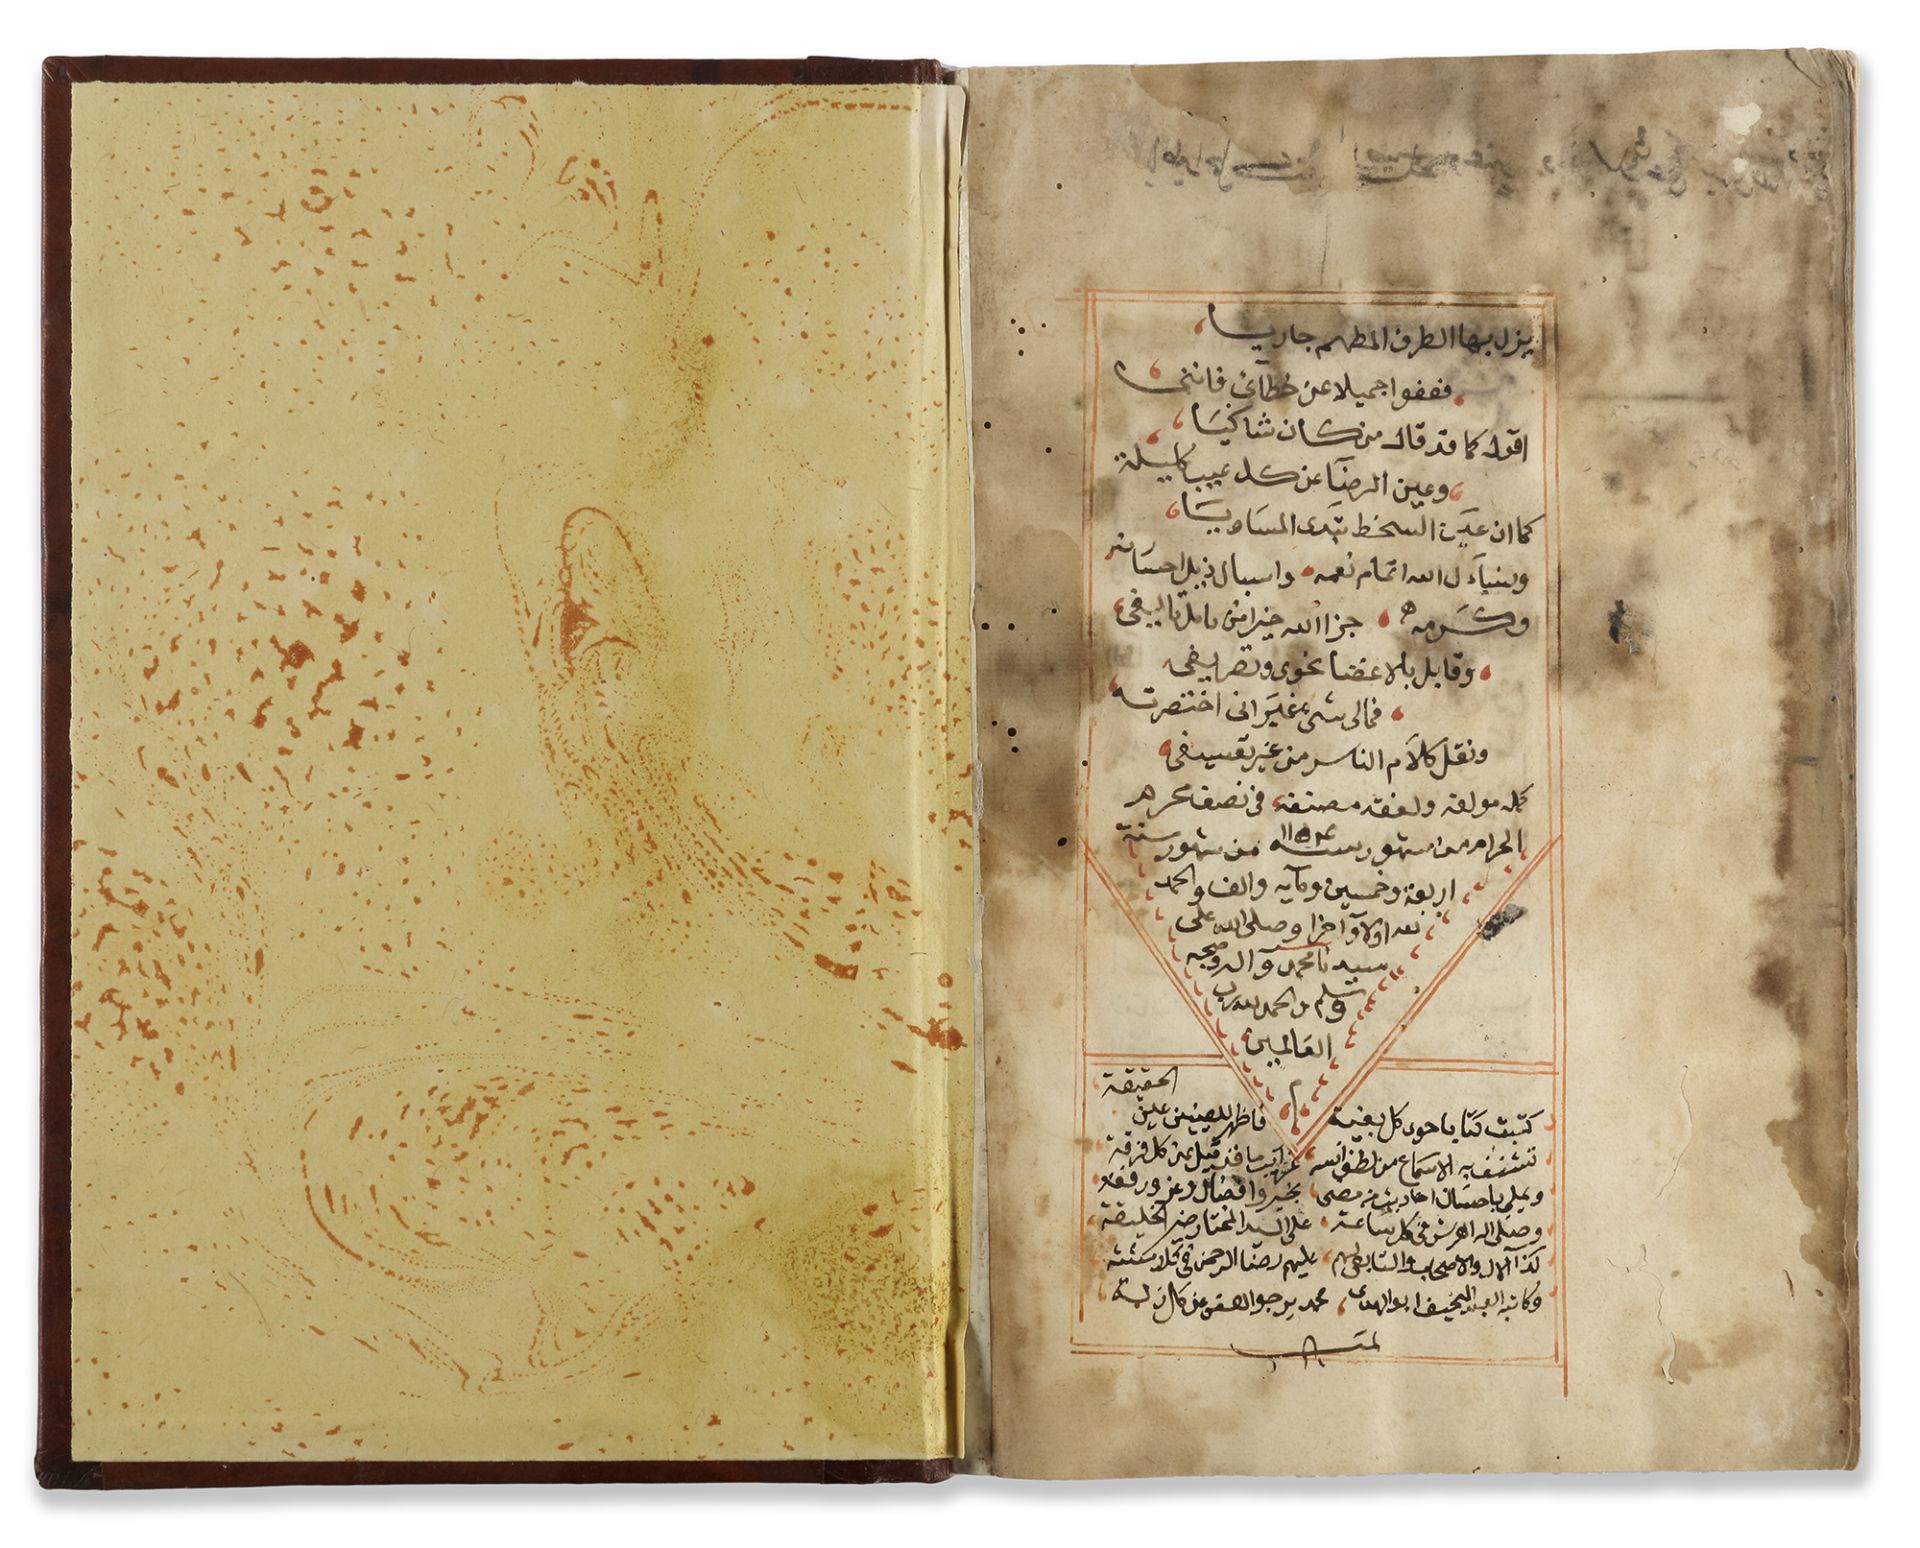 يزل بها الطرف المطهم جاريا
فعفوا جميلا عن خطآئ فاننى
اقول كما قد قال من كان شاكيا
وعين الرضا عن كل عيب كليلة
كما ان عين السخط تبدى المساويا
ونسأل الله اتمام نعمه واسبال ذيل احسانه
وكرمه جزا الله خيرا من تامل تاليفى
وقابل بالاغضا نحوى وتصريفى
فمالى شىء غير انى اختصرته
ونقل كلام الناس من غير تعسيفى
كمله مولفه ولفقه مصنفه فى نصف محرم
الحرام من شهور سنة ١١٥٤ من شهور سنة
اربعة وخمسين ومآيه والف والحمد
لله اولا وآخرا وصلى الله على
سيدنا محمد وآله وصحبه
وسلم والحمد لله رب
العالمين
م
كتبت كتابا حوى كل بغية فاظهر للعينين عين الحقيقة
تشنف به الاسماع من لطف انسه غرايب ما قد قيل عن كل فرقة
ويملى باحسان احاديث من مضى بخير وافضال وعز ورفعة
وصلى اله العرش فى كل ساعة على السيد المختار خير الخليقة
كذا الال والاصحاب والتابعى لهم عليهم رضا الرحمن فى كل
وكاتبه العبد النحيف ابو الهدى محمد يرجو العفو عن كل زلة
تمت